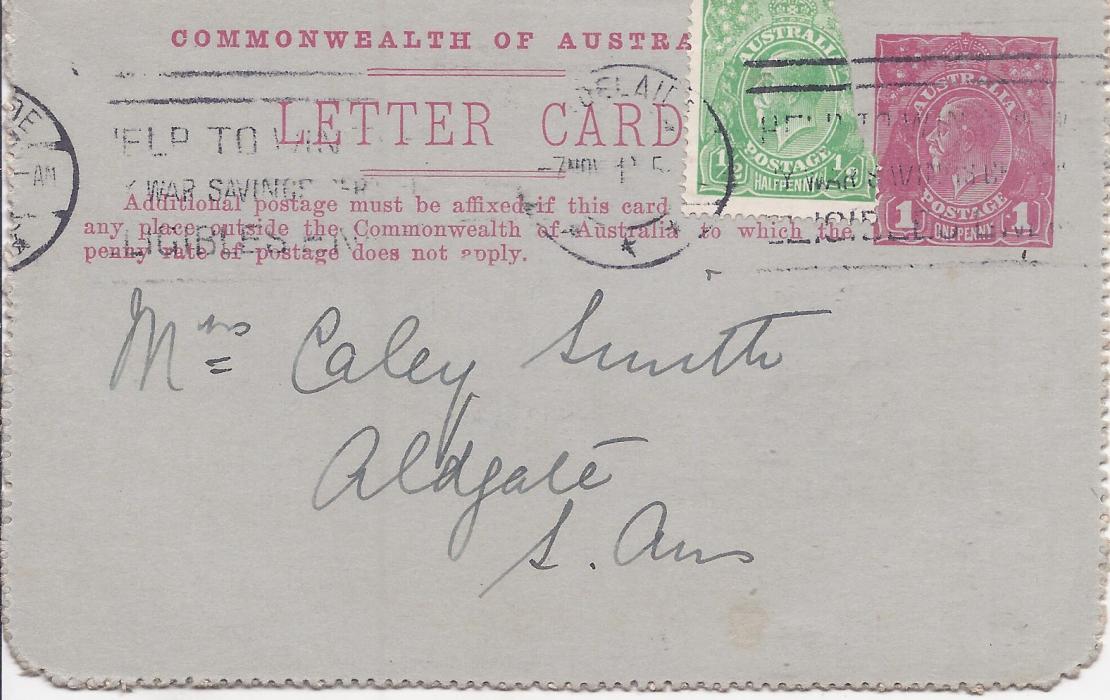 COMMONWEALTH OF AUSTRA
LETTER CARD
Additional postage must be affixed if this card
any place outside the Commonwealth of Australia to which the
penny rate of postage does not apply.
AUSTRALIA
POSTAGE
HALFPENNY
AUSTRALIA
POSTAGE
1 ONE PENNY 1
ELP TO WIN
WAR SAVINGS
HELP TO WIN
WAR
AM
Mrs Caley Smith
Aldgate
S. Aus